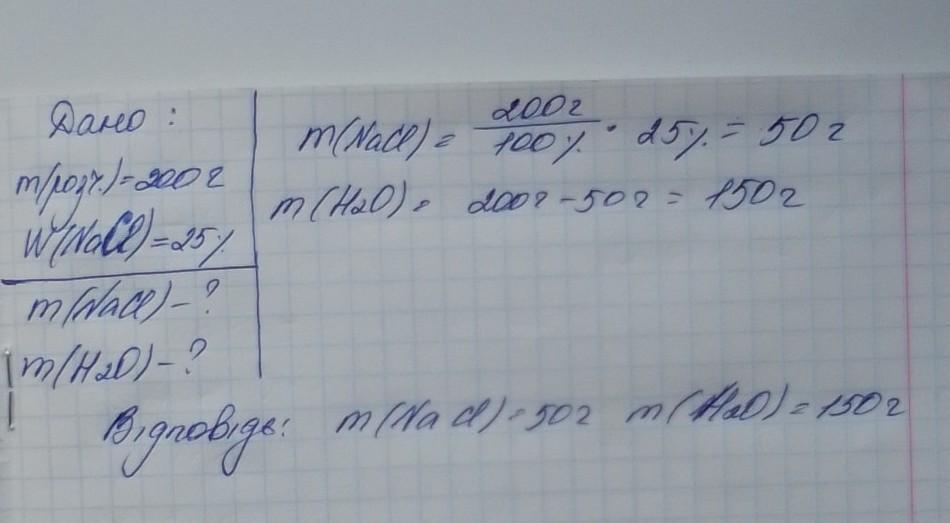 Дано:
m(розч.)=200г
W(NaCl)=25%
m(NaCl)-?
m(H2O)-?
m(NaCl)= 200г/100% · 25% = 50г
m(H2O)= 200г-50г = 150г
Відповідь: m(NaCl)=50г m(H2O)=150г